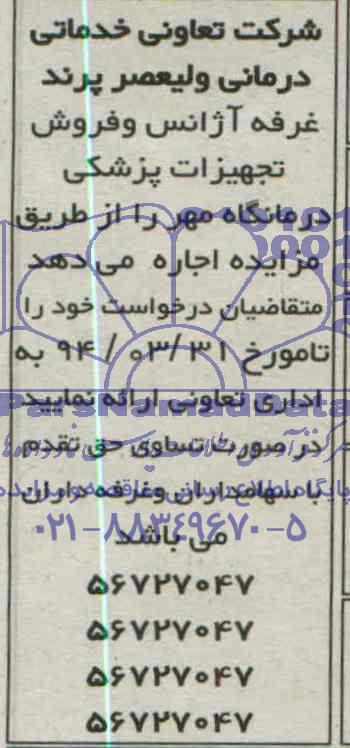 شرکت تعاونی خدماتی
درمانی ولیعصر پرند
غرفه آژانس وفروش
تجهیزات پزشکی
درمانگاه مهر را از طریق
مزایده اجاره می دهد
متقاضیان درخواست خود را
تامورخ ۹۴/۰۳/۳۱ به
اداری تعاونی ارائه نمایید
ParsNamadData
در صورت تساوی حق تقدم
با سهامداران وغرفه داران
۰۲۱-۸۸۳۴۹۶۷۰-۵
می باشد
۵۶۷۲۷۰۴۷
۵۶۷۲۷۰۴۷
۵۶۷۲۷۰۴۷
۵۶۷۲۷۰۴۷